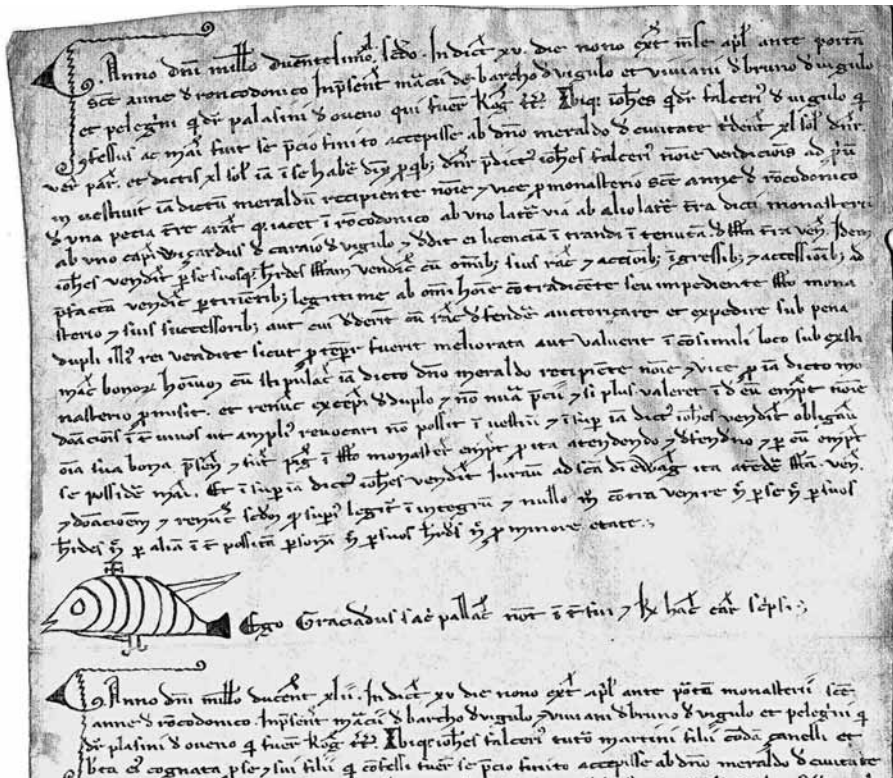 Anno dnī millo ducentesimo .xl. scdo . Indict xv. die nono ext mse apl ante portā
scē anne d roncodonico Inpsent mācii de barcho d vigulo et viviani d bruno d vigulo
et pelegni qdr palasini d oveno qui fuer Rog tt. Ibiq iohes qdr falceri d vigulo q
fessus ac mai fuit se pcio finito accepisse ab dno meraldo d civitate tdent xl sol dnr.
ver par. et dictis xl sol iā ī se habe dix p qb; dnr pdict iohes falceri noie vendicionis ad
in vestivit iā dictū meraldū recipiente noie ⁊ vice p monasterio scē anne d rōcodonico
d una pecia tre arat q iacet ī rōcodonico ab uno late via ab alio late tra dicti monasterii
ab uno capi wicardus d caraio d vigulo ⁊ ddit ei licenciā ī trandi ī tenutā d sta tra ven. Idem
iohes vendit p se suosq hrdes stam vendic cū omib; suis rac ⁊ accionib; īgressib; ⁊ accessionib; ad
pfactā vendic ptinetib; legitime ab omi hoie cōtradicēte seu impediente sto mona
sterio ⁊ suis successorib; aut cui dderit cū rac dfende auctoricare et expedire sub pena
dupli illi rei vendite sicut p tepr fuerit meliorata aut valuerit ī cōsimili loco sub exsti
mac bonoꝝ hoiuoꝝ cū stipulac iā dicto dno meraldo recipiente noie ⁊ vice p iā dicto mo
nasterio pmisit. et renuc except d duplo ⁊ nō nuā pcii ⁊ si plus valeret īd eū empt noie
doācionis īt vivos ut ampli revocari nō possit ī vestivi ⁊ īsup iā dict iohes vendit obligavi
oīa sua bona psen ⁊ fut pig ī sto monaster empt p ita atendendo ⁊ dfendno ⁊ p eū empt
se posside mai. Et īsup iā dict iohes vendit iuravi ad scā di ewāg ita atēde stā. ven.
⁊ doācioem ⁊ renuc scdm q sup legit ī integrū ⁊ nullo m cōtra venire n p se n p suos
hrdes n p aliā ī t positā psonā n p suos hrdes n p minore etate.
Ego Graciadus sac pallac not ī tfui ⁊ Rog hac cart scpsi
Anno dnī millo ducent xlii. Indict xv die nono ext apl ante portā monasterii sce
anne d rōcodonico. Inpsent mācii d barcho d vigulo ⁊ viviani d bruno d vigulo et pelegni q
dr plasini d oveno q fuer Rog tt. Ibiq iohes falceri tuto martini filii codā canelli et
bta ei cognata p se ⁊ sui filii q cōfessi fuer se pcio finito accepisse ab dno meraldo d civitate